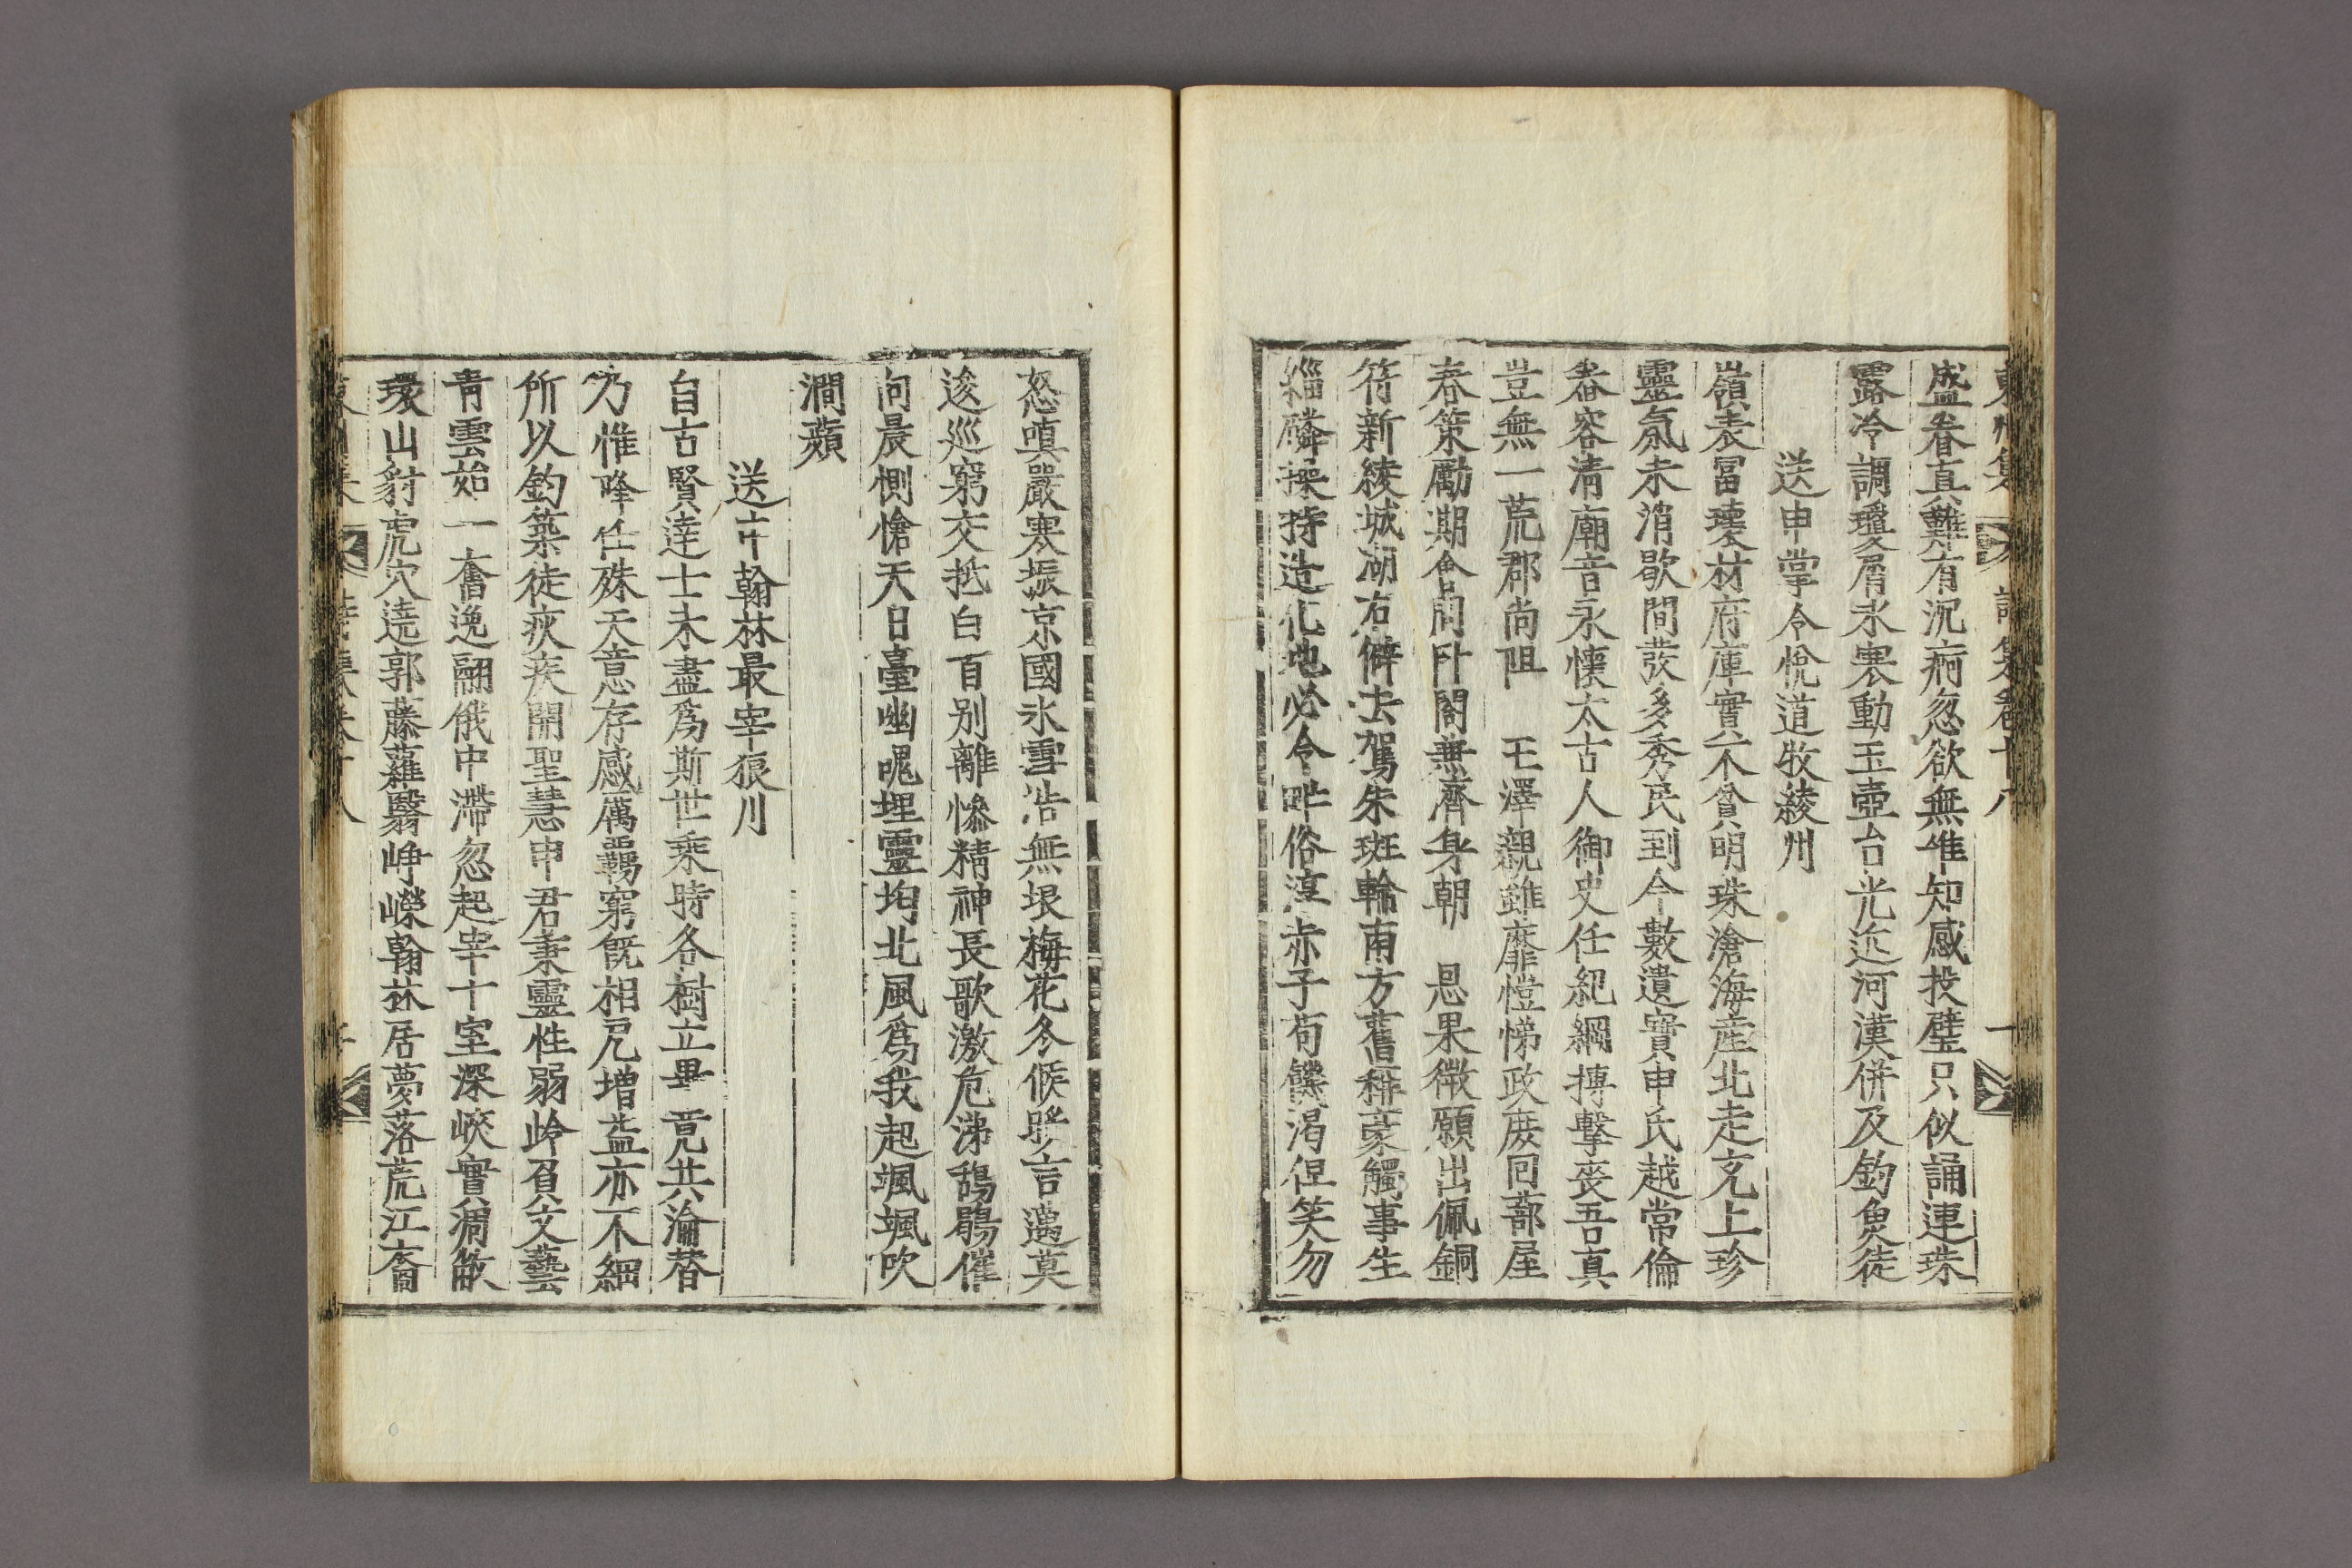 盛眷直難有沉痾忽欲無唯知感投璧只似誦連珠
露冷調瓊屑氷寒動玉壺台光近河漢併及釣魚徒
送申掌令悅道牧綾州
嶺表富瓌材府庫實不貧明珠滄海産北走充上珍
靈氛未消歇間發多秀民到今數遺寶申氏越常倫
春容清廟音永懷太古人御史任紀綱搏擊喪吾真
豈無一荒郡尚阻 王澤親雖靡愷悌政庶回蔀屋
春策勵期會間升閤兼濟身朝 恩果徵願出佩銅
符新綾城湖右僻去駕朱斑輪南方舊稱豪觸事生
緇磷操持造化地必令畔俗淳赤子苟饑渴但笑勿
怒嗔嚴寒振京國氷雪浩無垠梅花冬候晚言邁莫
逡巡窮交抵白首別離慘精神長歌激危涕鵠鶡催
向晨惻愴天日臺幽魂埋靈均北風爲我起颯颯吹
澗蘋
送申翰林最宰狼川
自古賢達士未盡爲斯世乘時各樹立畢竟共淪替
乃惟降任殊天意存感厲羈窮旣相尼增益亦不細
所以釣築徒疢疾開聖慧申君秉靈性弱齡負文藝
靑雲始一奮逸翮俄中滯忽起宰十室深峽實凋敝
環山豺虎穴遶郭藤蘿翳崢嶸翰林居夢落荒江裔